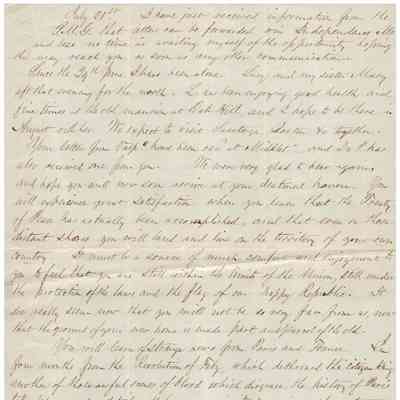 July 21st I have just received information from the
P.M.G. that letter can be forwarded via Independence Mo
and lose no time in availing myself of the opportunity hoping
this may reach you as soon as any other communication.
Since the 29th June I have been alone. Lucy and my sister Mary
left that evening for the north. L. is been enjoying good health and
fine times at the old mansion at Rock Hill, and I hope to be there in
August next. We expect to visit Saratoga, Boston &c together.
Your letter from "Ship
also received one from you. We were very glad to hear again
and hope you will now soon arrive at your destined haven. You
will experience great satisfaction when you learn that the Treaty
of Peace has actually been accomplished, and that even on those
distant shores you will land and live on the territory of your own
country. It must be a source of much comfort and enjoyment to
you to feel that you are still within the limits of the Union, still under
the protection of the laws and the flag of our happy Republic. It
does really seem now that you will not be so very far from us, now
that the ground of your new home is made part and parcel of the old.
You will learn of strange news from Paris and France
four months from the Revolution of Feby, which dethroned the citizen king
another of those awful scenes of blood which disgrace the history of Paris